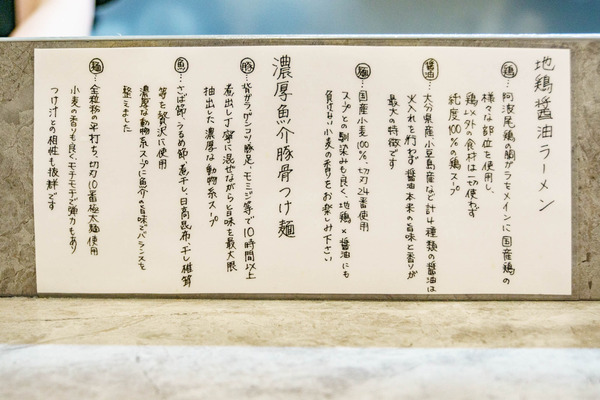 地鶏醤油ラーメン
鶏…阿波尾鶏の胴ガラをメインに国産鶏の
様々な部位を使用し、
鶏以外の食材は一切使わず
純度100%の鶏スープ
醤油…大分県産小豆島産など計4種類の醤油は
火入れを行わず醤油本来の旨味と香りが
最大の特徴です
麺…国産小麦100%、切刃24番使用
スープとの馴染みも良く、地鶏×醤油にも
負けない小麦の香りをお楽しみ下さい
濃厚魚介豚骨つけ麺
豚…背ガラ、ゲンコツ、豚足、モミジ等で10時間以上
煮出し丁寧に混ぜながら旨味を最大限
抽出した濃厚な動物系スープ
魚…さば節、うるめ節、煮干し、日高昆布、干し椎茸
等を贅沢に使用
濃厚な動物系スープに魚介の旨味でバランスを
整えました
麺…全粒粉の平打ち、切刃10番極太麺使用
小麦の香りも良くモチモチで弾力もあり
つけ汁との相性も抜群です